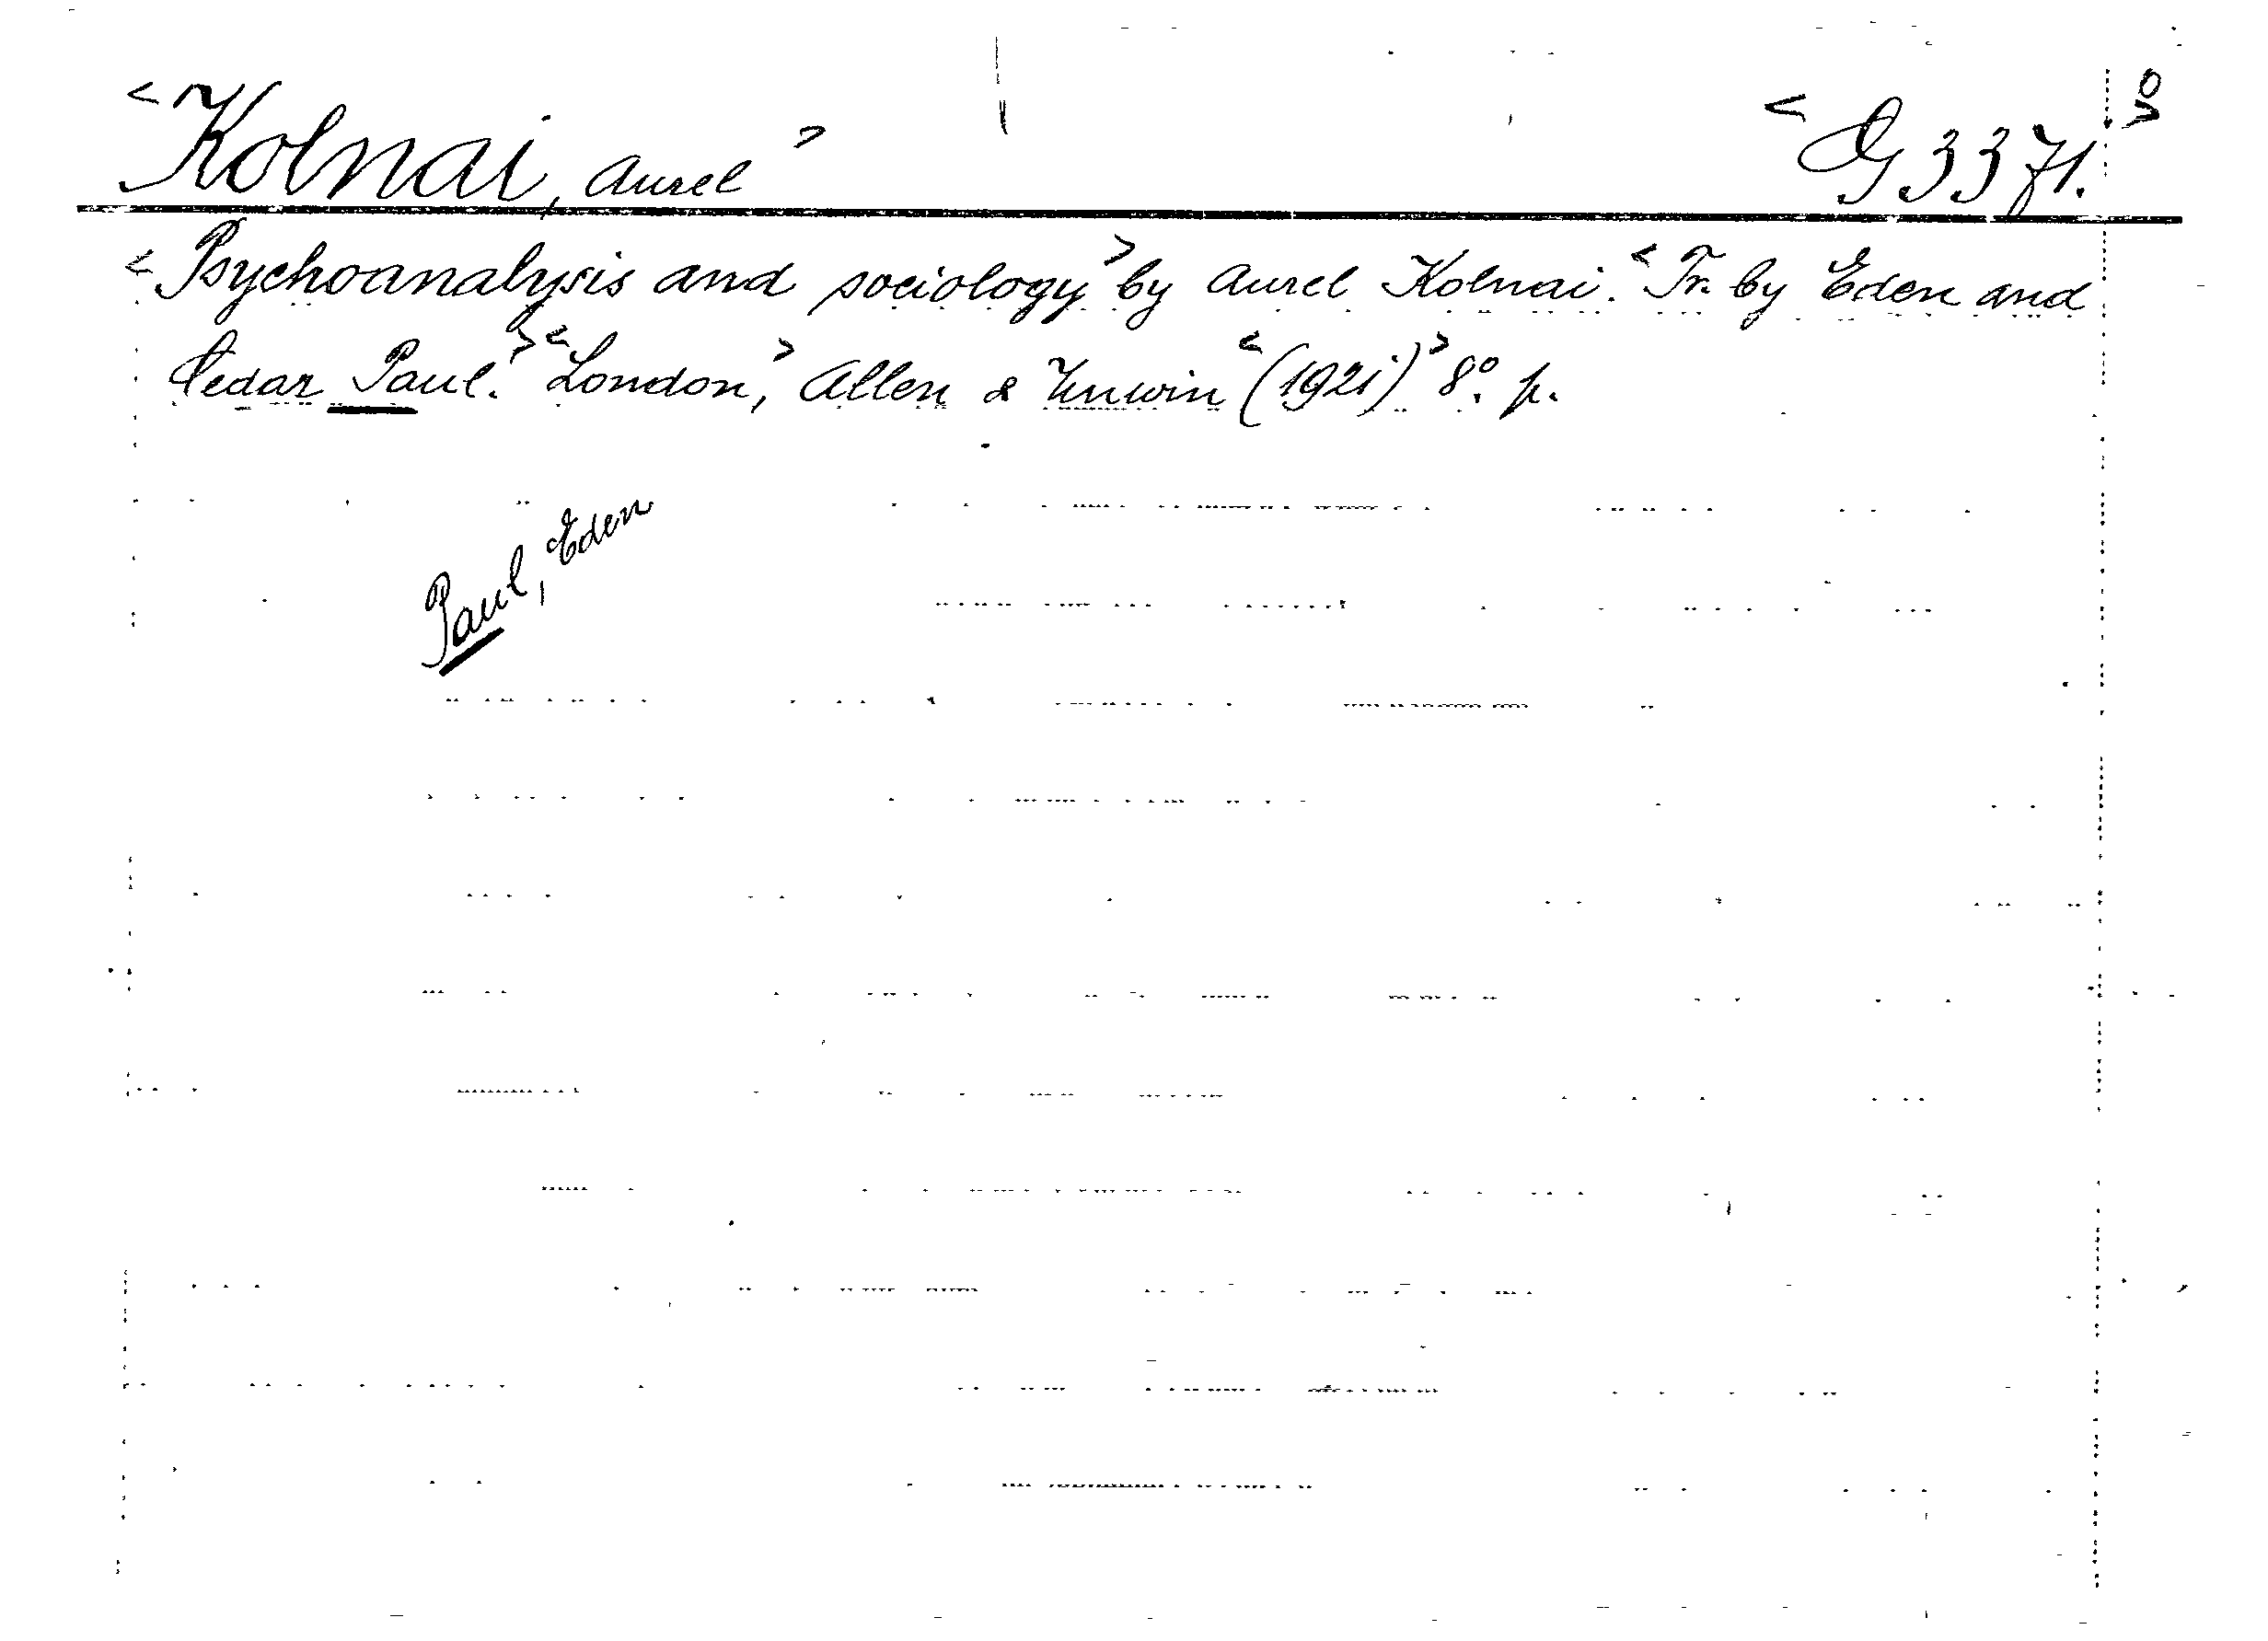 <Kolnai, Aurel> <G 3371.°>
<Psychoanalysis and sociology> by Aurel Kolnai. <Tr. by Eden and
Cedar Paul.> <London,> Allen & Unwin <(1921)> 8°. p.
Paul, Eden